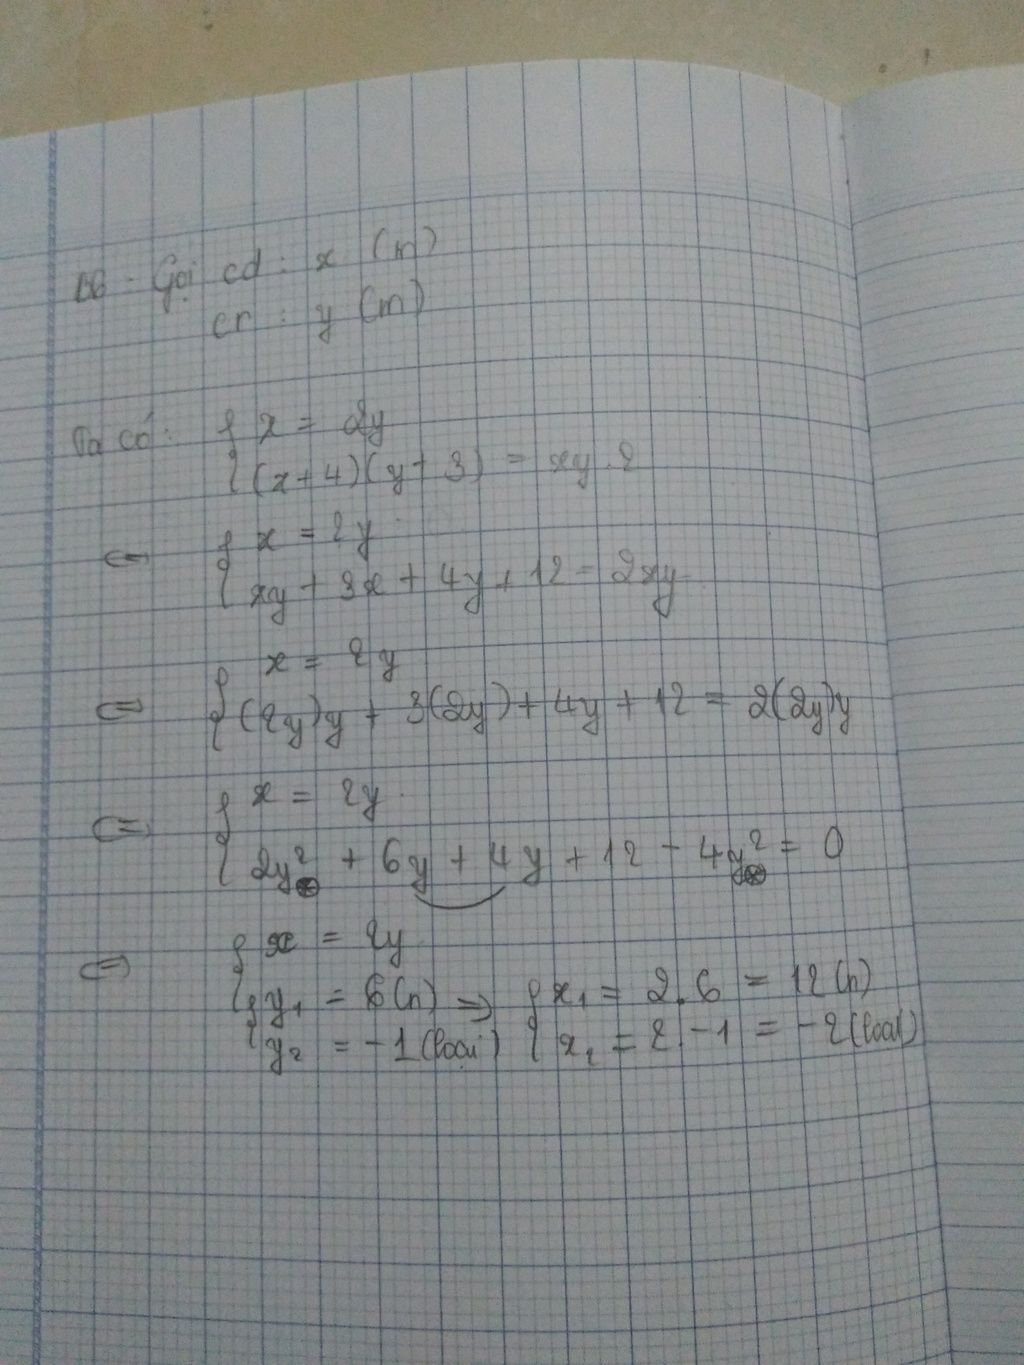 B6 - Gọi cd : x (m)
cr : y (m)
Ta có: { x = 2y
(x+4)(y+3) = xy.2
⇔ { x = 2y
xy + 3x + 4y + 12 = 2xy
⇔ { x = 2y
(2y)y + 3(2y) + 4y + 12 = 2(2y)y
⇔ { x = 2y
2y² + 6y + 4y + 12 - 4y² = 0
⇔ { x = 2y
{ y₁ = 6(n) ⇒ { x₁ = 2.6 = 12(n)
y₂ = -1(loại) { x₂ = 2.-1 = -2(loại)